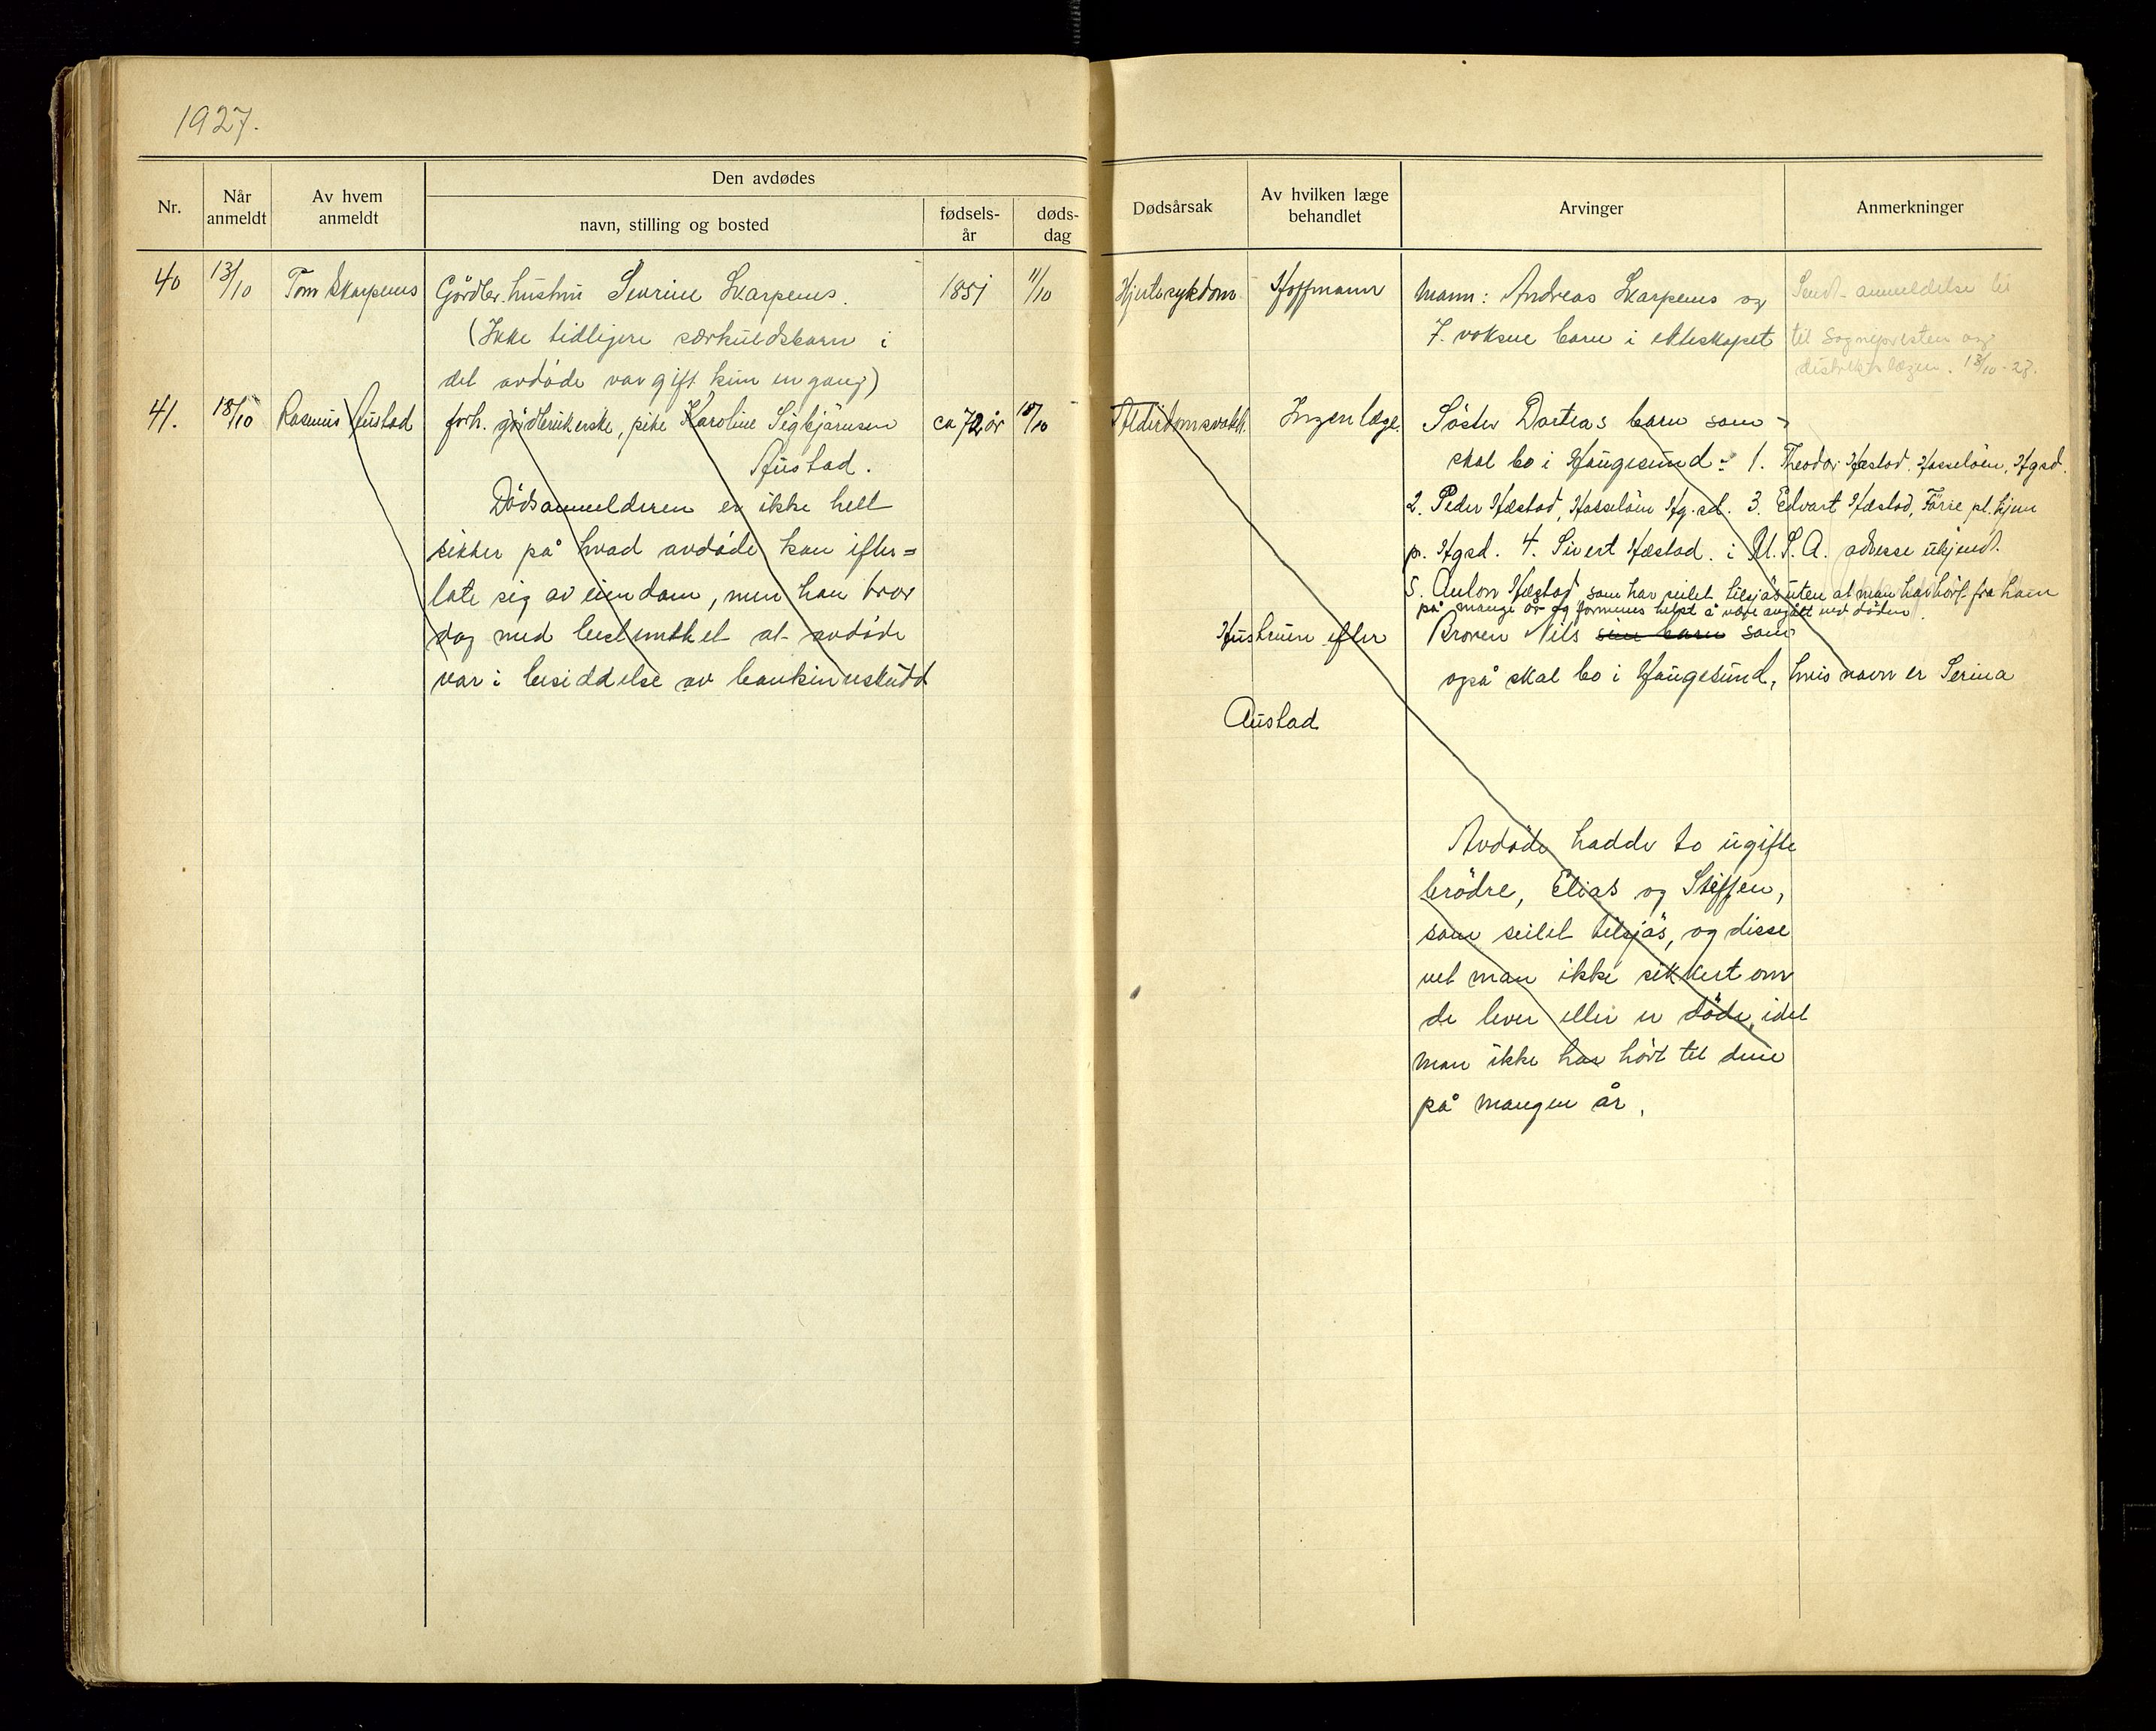 1927.
Nr.
Når anmeldt
Av hvem anmeldt
Den avdødes
navn, stilling og bosted
fødsels-år
døds-dag
Dødsårsak
Av hvilken læge behandlet
Arvinger
Anmerkninger
40 13/10 Tom Skarpenes Gårdbr. hustru Severine Skarpenes. 1851 11/10 Hjertesykdom Hoffmann Mann: Andreas Skarpenes og Sendt anmeldelse
(Ikke tidligere særkuldsbarn i 7 voksne barn i ekteskapet til sognepresten og
det avdøde var gift kun en gang) distriktslægen. 13/10-27.
41. 18/10 Rasmus Austad forh. gårdbrukerske, pike Karoline Sigbjørnsen ca 72 år 18/10 Alderdomsvakh. Ingen læge. Søster Dorteas barn som
Austad. skal bo i Haugesund: 1. Theodor Hæstad, Hasseløen, Hgsd.
Dødsanmelderen er ikke helt 2. Peder Hæstad, Hasseløen Hg.sd. 3. Edvart Hæstad, Førre pl.hjem
sikker på hvad avdøde kan efter= p. Hgsd. 4. Sivert Hæstad. i U.S.A. adresse ukjendt.
late sig av eiendom, men han tror 5. Anton Hæstad som har seilet tilsjøs uten at man har hørt fra ham
på mange år og formenes helst å være avgått ved døden.
dog med bestemthet at avdøde Hustruen efter Broren Nils sine barn som
var i besiddelse av bankinnskudd også skal bo i Haugesund, hvis navn er Serina
Austad
Avdøde hadde to ugifte
brødre, Elias og Steffen,
som seilet tilsjøs, og disse
vet man ikke sikkert om
de lever eller er døde, idet
man ikke har hørt til dem
på mangen år.